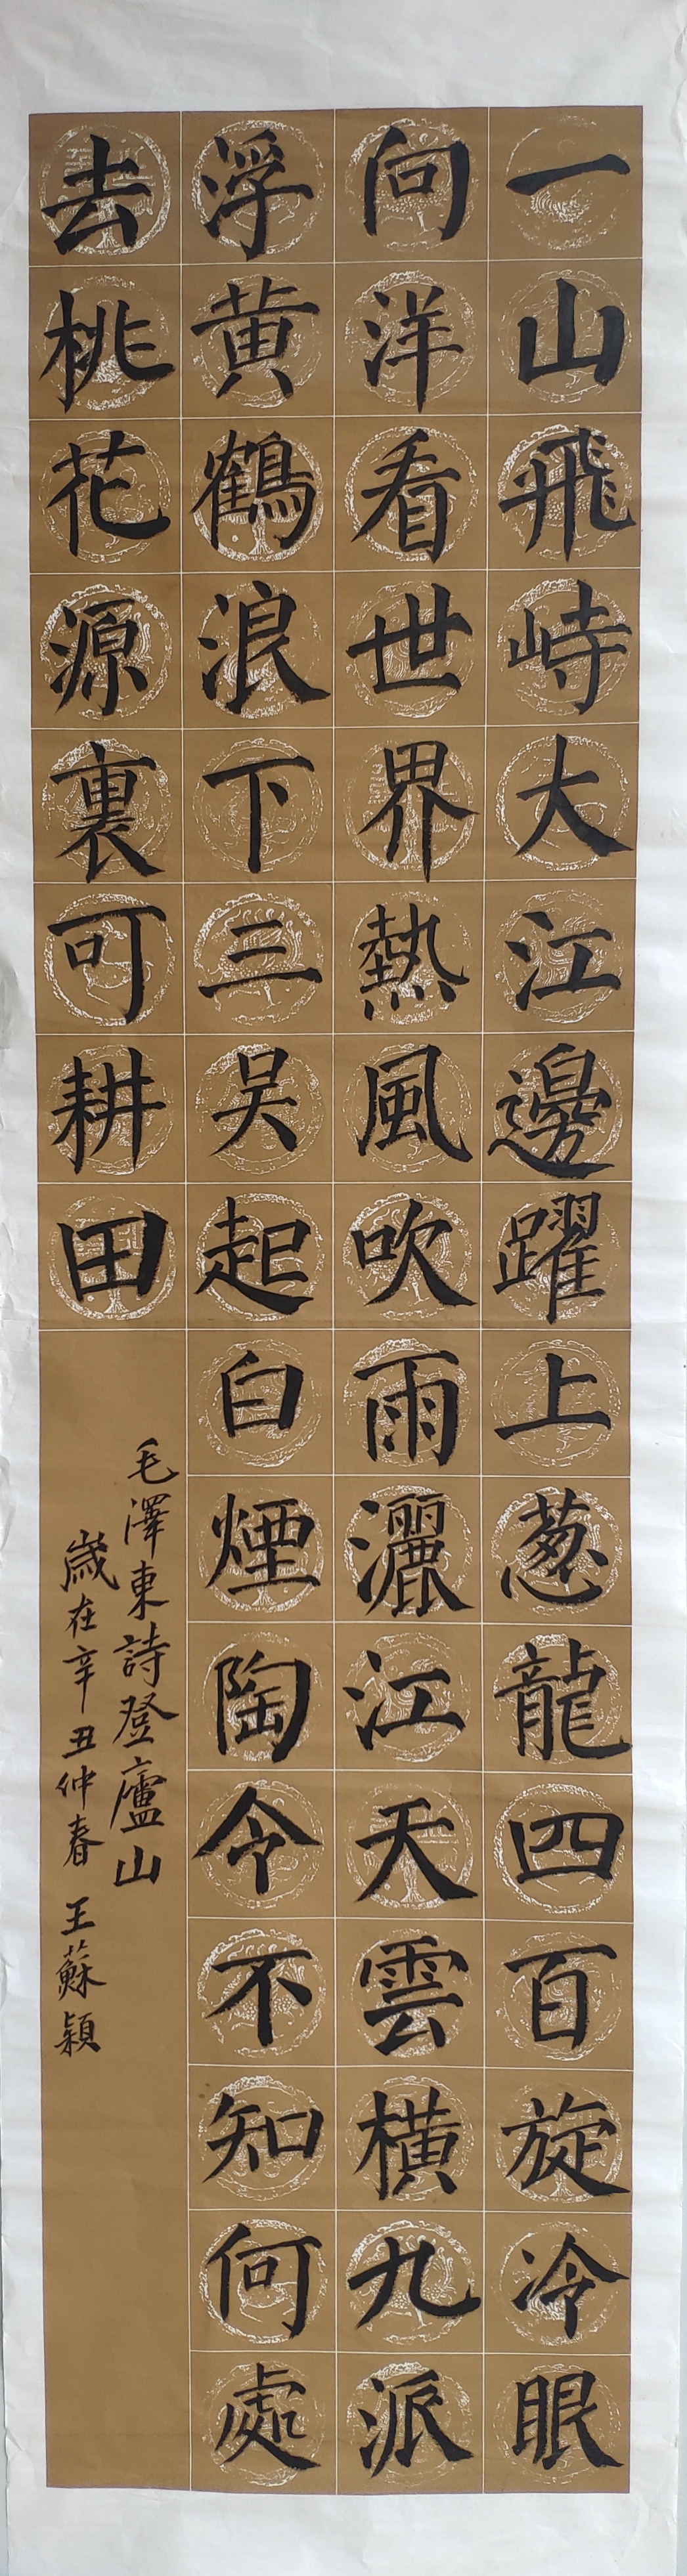 一山飛峙大江邊躍上葱龍四百旋冷眼
向洋看世界熱風吹雨灑江天雲橫九派
浮黄鶴浪下三吴起白煙陶令不知何處
去桃花源裏可耕田
毛澤東詩登廬山
歲在辛丑仲春 王蘇穎